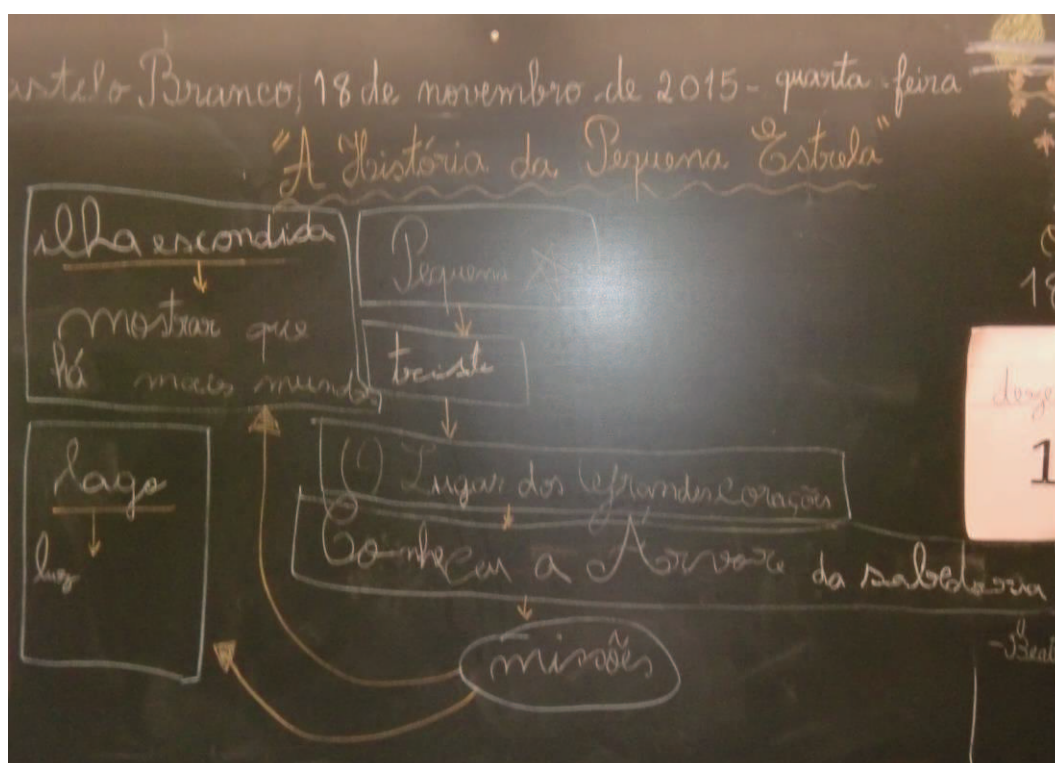 astelo Branco, 18 de novembro de 2015 - quarta-feira
"A História da Pequena Estrela"
ilha escondida
mostrar que
há mais mundo
Pequena
triste
O Lugar dos Grandes Corações
Conheceu a Árvore da sabedoria
missões
lago
luz
18
1